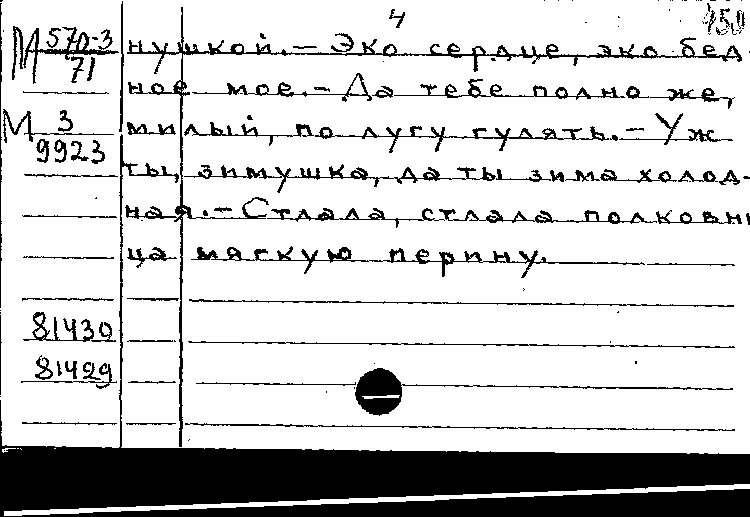 4
450
М 570-3
71
нушкой.- Эко сердце, эко бед-
ное мое.- Да тебе полно же,
М 3
9923
милый, по лугу гулять.- Уж
ты, зимушка, да ты зима холод-
ная.- Стлала, стлала полковни
ца мягкую перину.
81430
81429